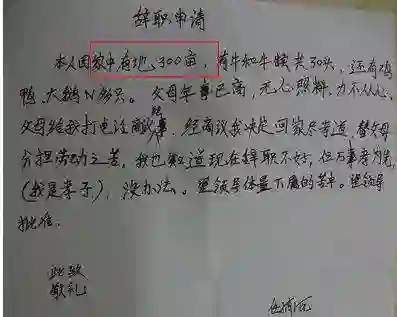 辞职申请
本人因家中有地、300亩，有牛和牛犊共30头，还有鸡
鸭、大鹅N多只。父母年事已高，无人照料，力不从心，
父母给我打电话商议此事，经商议我决定回家尽孝道，替父母
分担劳动之苦。我也知道现在辞职不好，但万事孝为先，
（我是孝子），没办法。望领导体量下属的苦中。望领导
批准。
此致
敬礼